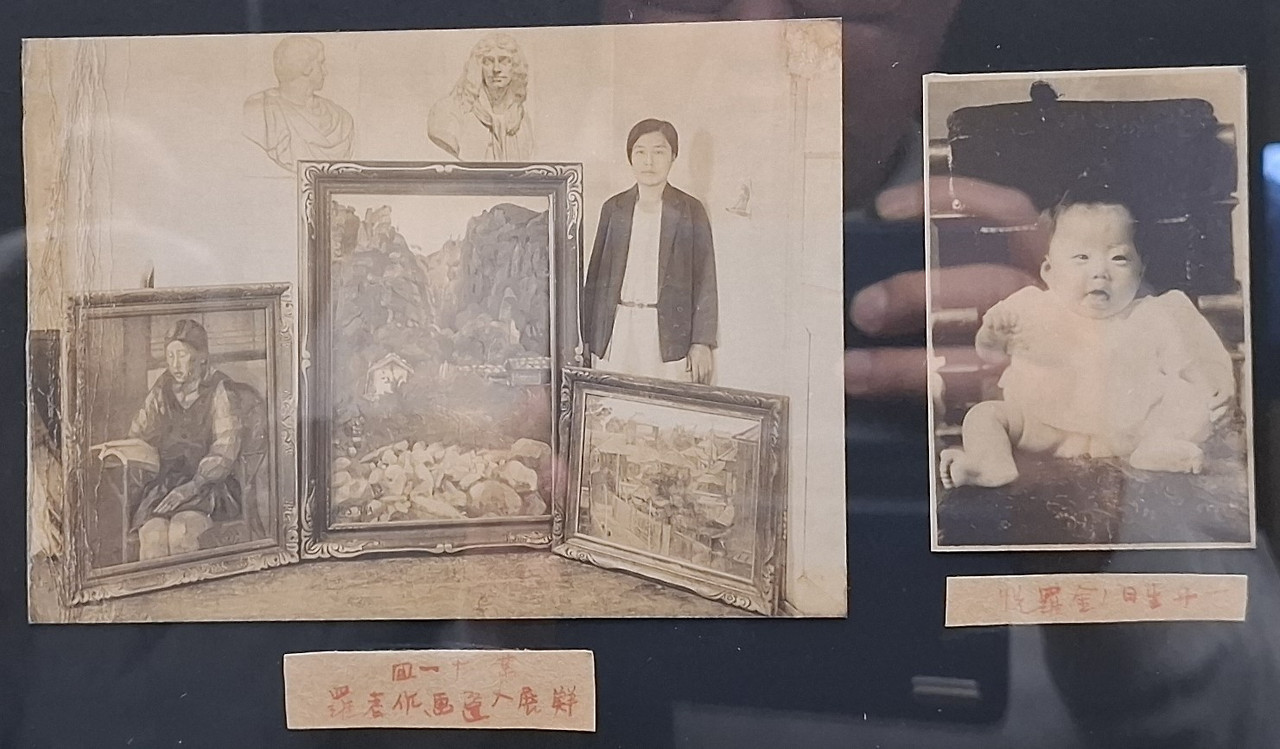 第十一回
鮮展入選画作者羅
生日ノ金羅悦